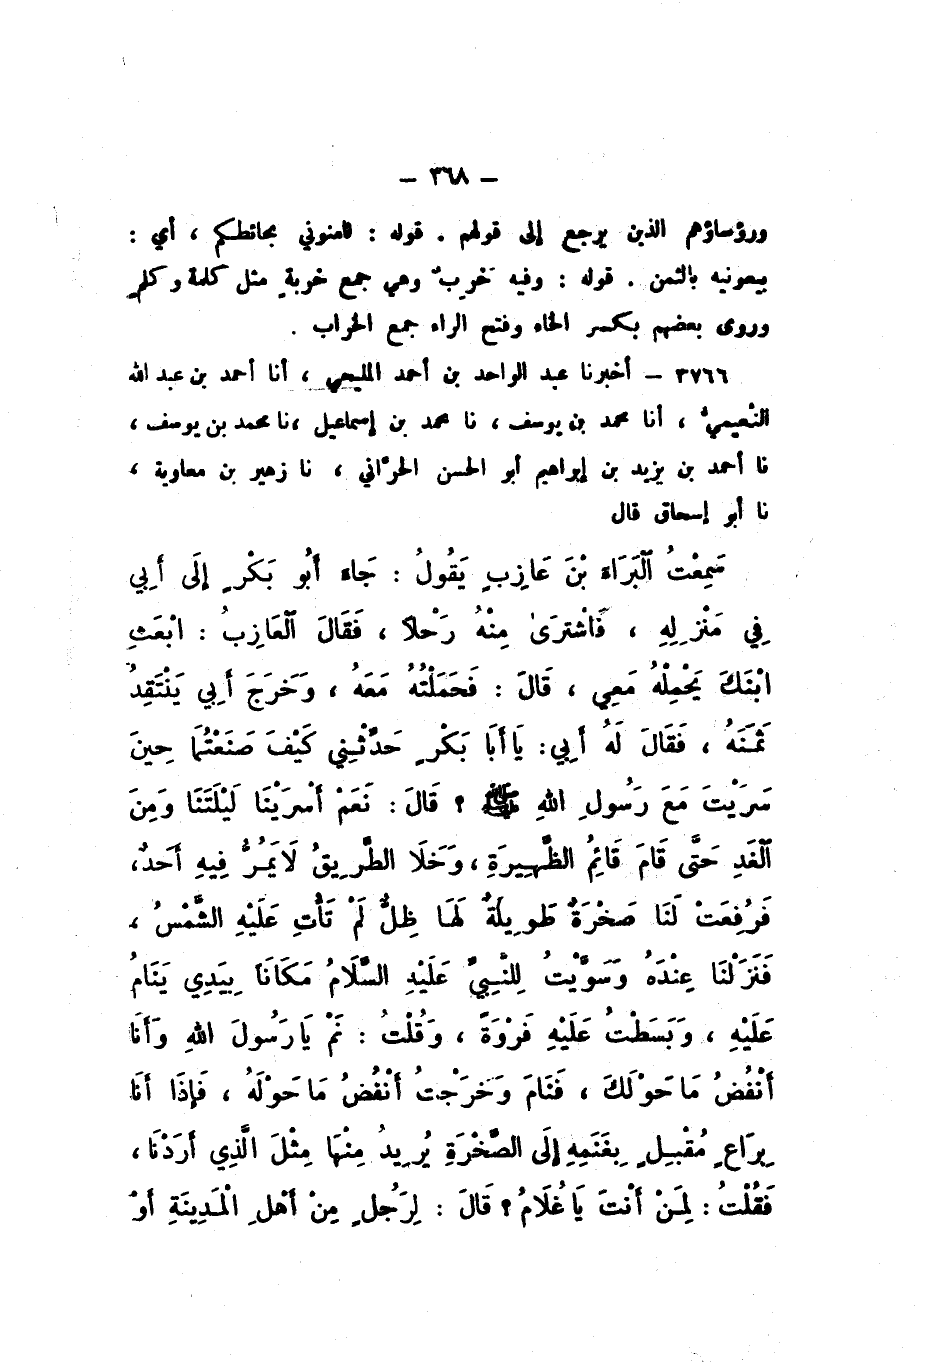 – ٣٦٨ –
ورؤساؤهم الذين يرجع إلى قولهم . قوله : ثامنوني بحائطكم ، أي :
بيعونيه بالثمن . قوله : وفيه خَرِبٌ وهي جمع خربةٍ مثل كلمة وكلمٍ
وروى بعضهم بكسر الخاء وفتح الراء جمع الخراب .
٣٧٦٦ – أخبرنا عبد الواحد بن أحمد المليحي ، أنا أحمد بن عبد الله
النُّعيميُّ ، أنا محمد بن يوسف ، نا محمد بن إسماعيل ، نا محمد بن يوسف ،
نا أحمد بن يزيد بن إبراهيم أبو الحسن الحرَّاني ، نا زهير بن معاوية ،
نا أبو إسحاق قال
سَمِعْتُ ٱلْبَرَاءَ بْنَ عَازِبٍ يَقُولُ : جَاءَ أَبُو بَكْرٍ إِلَى أَبِي
فِي مَنْزِلِهِ ، فَاشْتَرَىٰ مِنْهُ رَحْلًا ، فَقَالَ ٱلْعَازِبُ : ابْعَثِ
ابْنَكَ يَحْمِلْهُ مَعِي ، قَالَ : فَحَمَلْتُهُ مَعَهُ ، وَخَرَجَ أَبِي يَنْتَقِدُ
ثَمَنَهُ ، فَقَالَ لَهُ أَبِي : يَا أَبَا بَكْرٍ حَدِّثْنِي كَيْفَ صَنَعْتُمَا حِينَ
سَرَيْتَ مَعَ رَسُولِ اللهِ ﷺ ؟ قَالَ : نَعَمْ أَسْرَيْنَا لَيْلَتَنَا وَمِنَ
ٱلْغَدِ حَتَّى قَامَ قَائِمُ الظَّهِيرَةِ ، وَخَلَا الطَّرِيقُ لَا يَمُرُّ فِيهِ أَحَدٌ ،
فَرُفِعَتْ لَنَا صَخْرَةٌ طَوِيلَةٌ لَهَا ظِلٌّ لَمْ تَأْتِ عَلَيْهِ الشَّمْسُ ،
فَنَزَلْنَا عِنْدَهُ وَسَوَّيْتُ لِلنَّبِيِّ عَلَيْهِ السَّلَامُ مَكَانَاً بِيَدِي يَنَامُ
عَلَيْهِ ، وَبَسَطْتُ عَلَيْهِ فَرْوَةً ، وَقُلْتُ : نَمْ يَا رَسُولَ اللهِ وَأَنَا
أَنْفُضُ مَا حَوْلَكَ ، فَنَامَ وَخَرَجْتُ أَنْفُضُ مَا حَوْلَهُ ، فَإِذَا أَنَا
بِرَاعٍ مُقْبِلٍ بِغَنَمِهِ إِلَى الصَّخْرَةِ يُرِيدُ مِنْهَا مِثْلَ الَّذِي أَرَدْنَا ،
فَقُلْتُ : لِمَنْ أَنْتَ يَا غُلَامُ ؟ قَالَ : لِرَجُلٍ مِنْ أَهْلِ الْمَدِينَةِ أَوْ